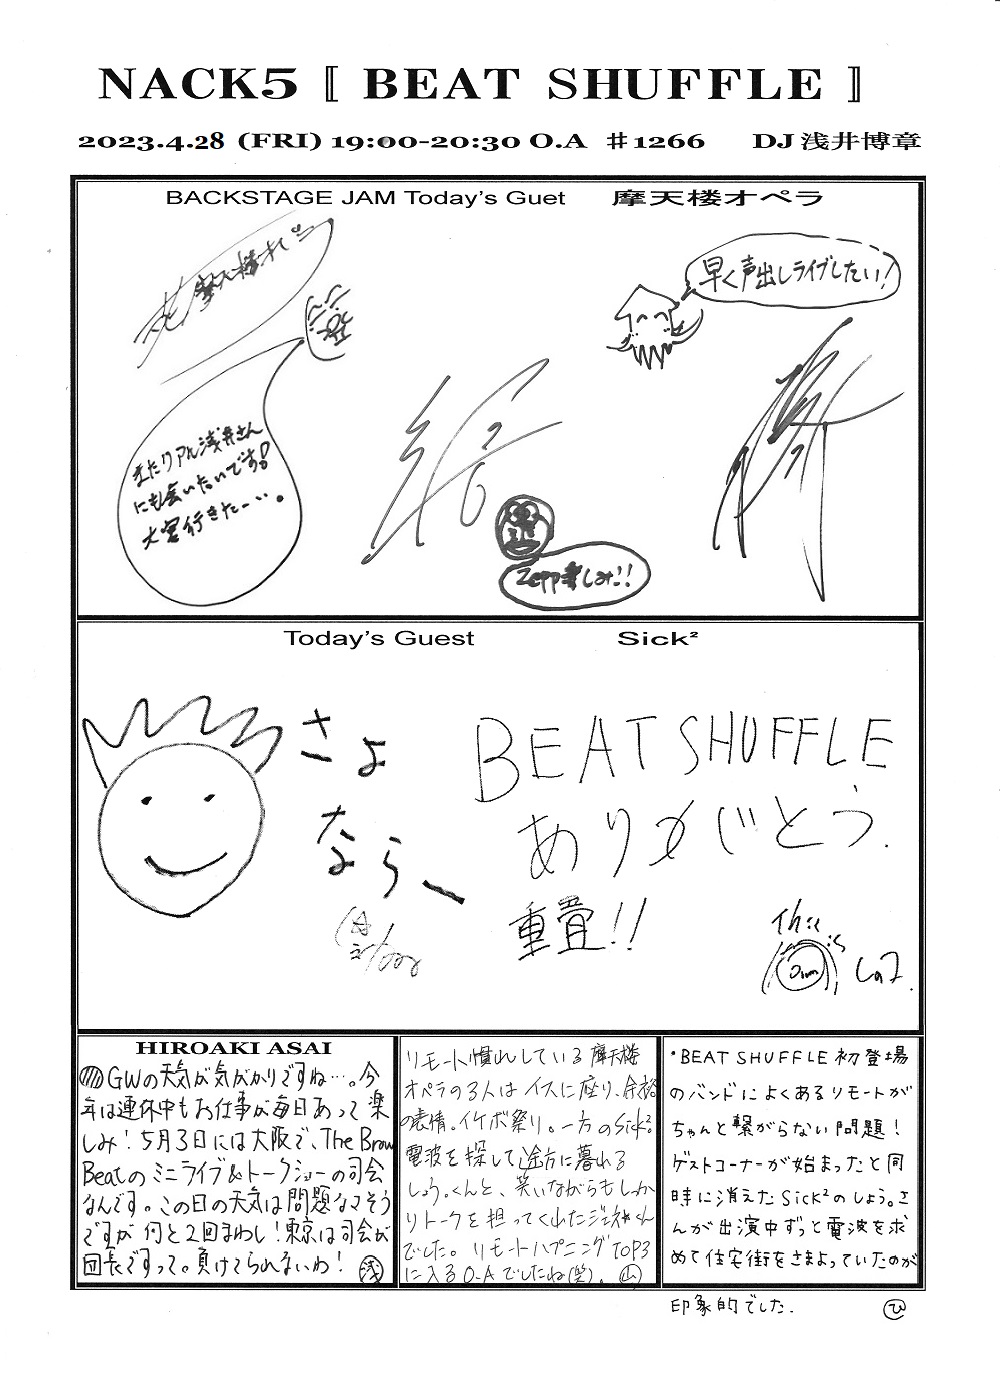 NACK5 〚 BEAT SHUFFLE 〛
2023.4.28 (FRI) 19:00-20:30 O.A ♯1266 DJ 浅井博章
BACKSTAGE JAM Today's Guet 摩天楼オペラ
摩天楼オペラ
早く声出しライブしたい!
またリアル浅井さん
にも会いたいです!
大宮行きたー…。
Zepp楽しみ!!
Today's Guest Sick²
さよ
ならー
BEAT SHUFFLE
ありがとう.
重畳!!
This is
HIROAKI ASAI
GWの天気が気がかりですね…。今
年は連休中もお仕事が毎日あって楽
しみ! 5月3日には大阪で、The Brow
Beatのミニライブ&トークショーの司会
なんです。この日の天気は問題なさそう
ですが 何と2回まわし! 東京は司会が
団長ですって。負けてられないわ! 浅
リモート慣れしている 摩天楼
オペラの3人は イスに座り、余裕
の表情。イケボ祭り。一方のSick².
電波を探して途方に暮れる
しょう。くんと、笑いながらもしっか
りトークを担ってくれたジェネ*くん
でした。リモートハプニングTOP3
に入るO.Aでしたね(笑)。 山
・BEAT SHUFFLE 初登場
のバンドによくあるリモートが
ちゃんと繋がらない問題!
ゲストコーナーが始まったと同
時に消えたSick²のしょう。さ
んが出演中ずっと電波を求
めて住宅街をさまよっていたのが
印象的でした. ひ